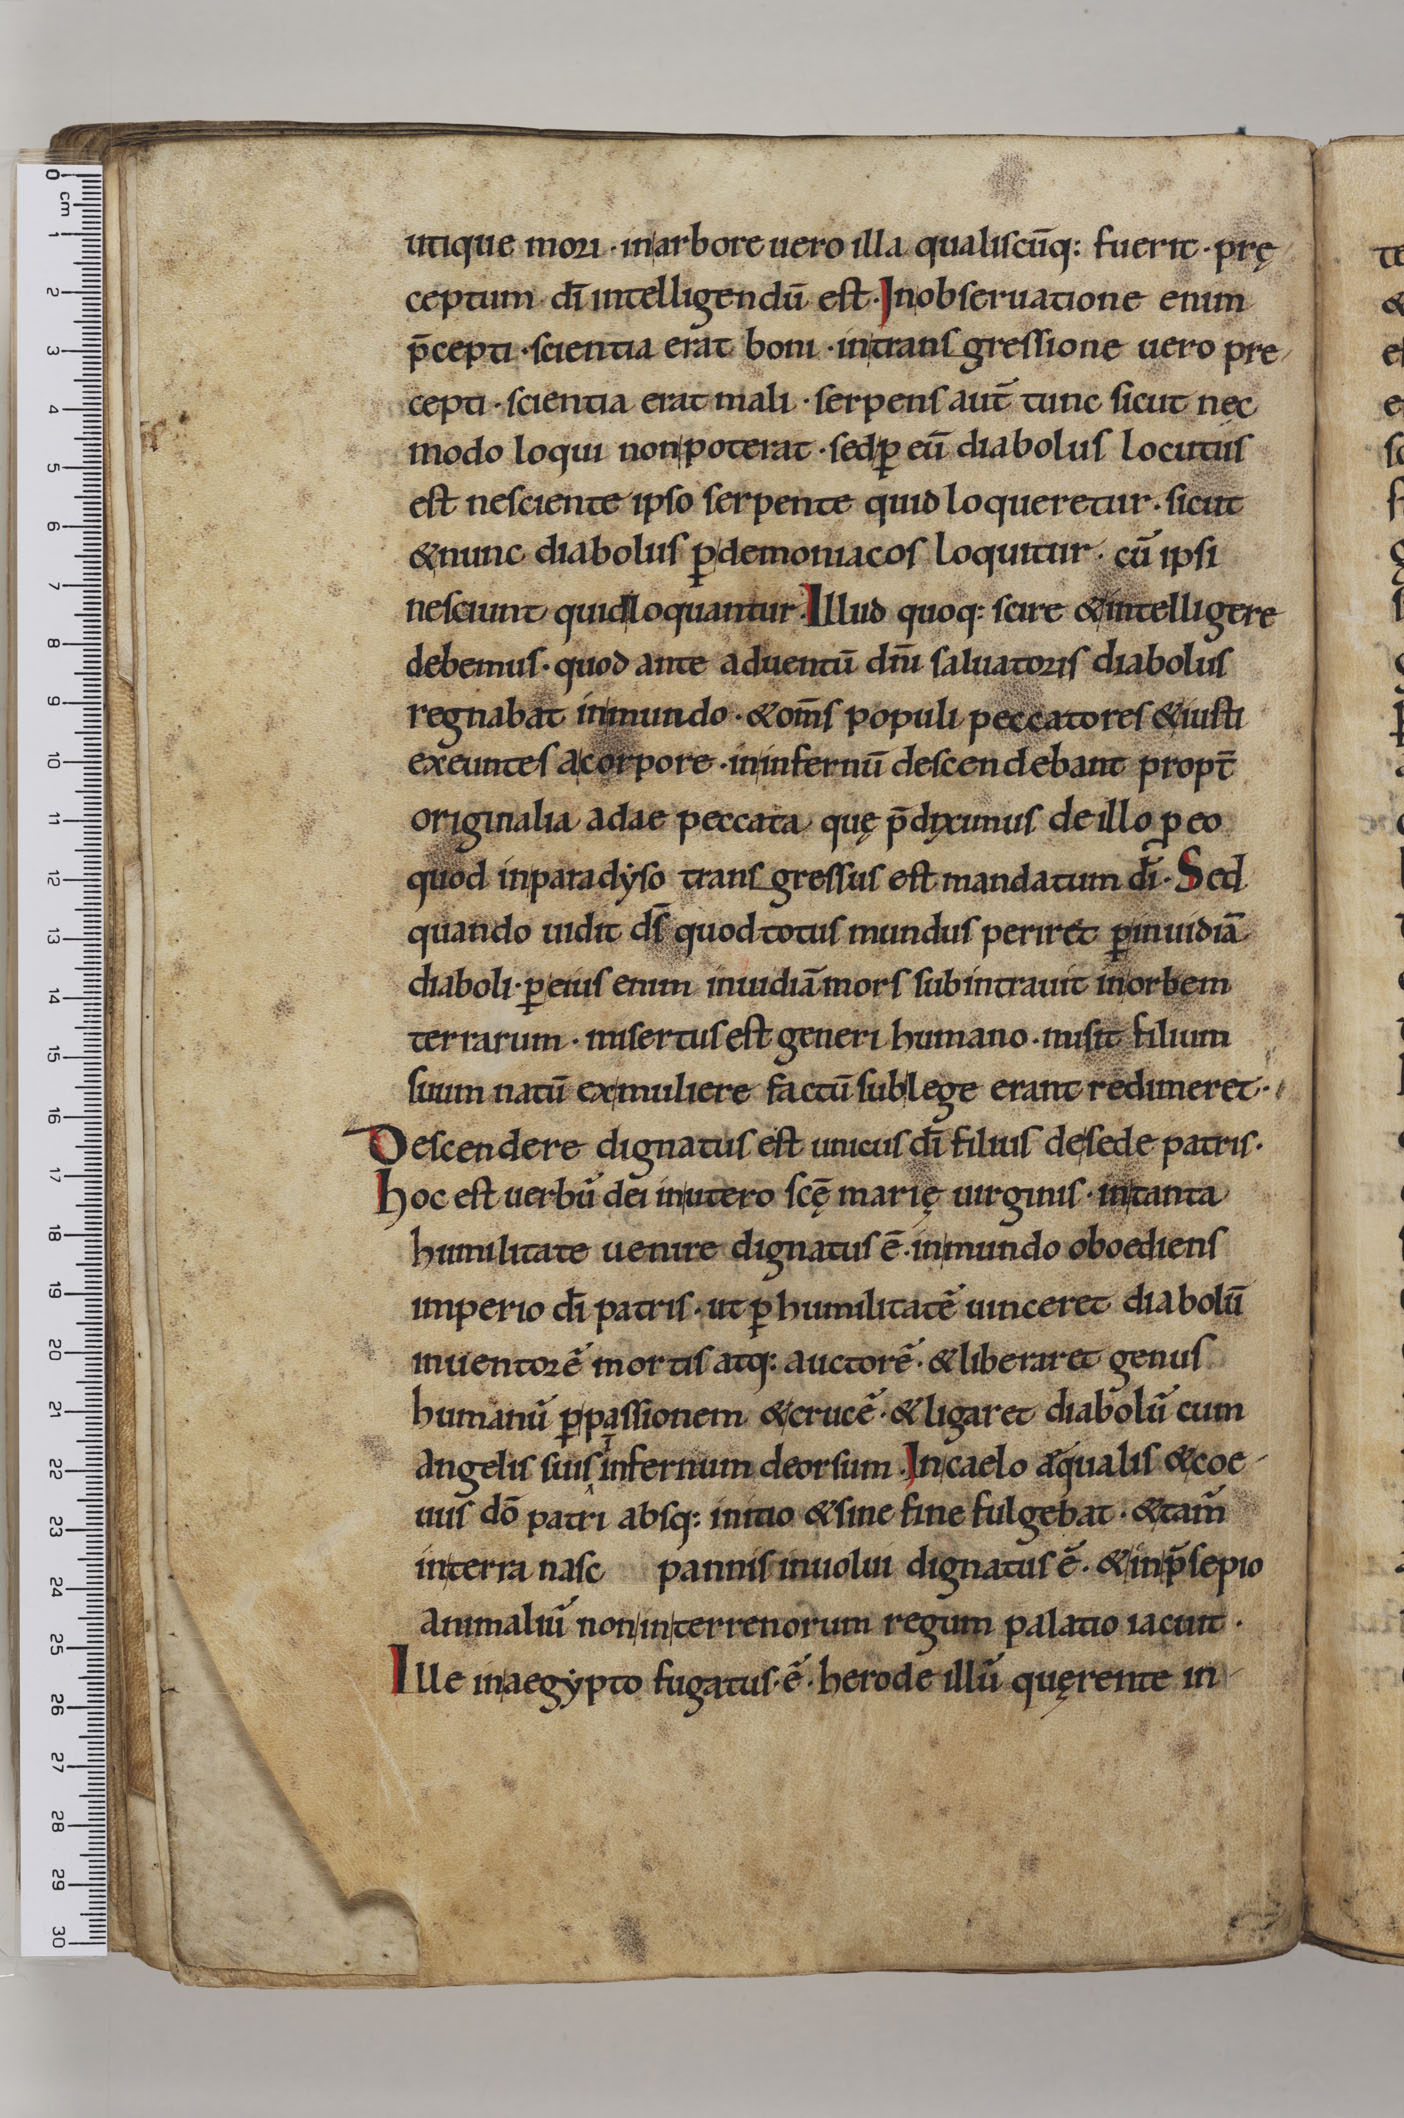 utique mori · inarbore uero illa qualiscūq: fuerit · prę
ceptum dī intelligendū est · Inobseruatione enim
p̄cepti · scientia erat boni · intransgressione uero pre
cepti · scientia erat mali · serpens aut̄ tunc sicut nec
modo loqui nonpoterat · sedꝑ eū diabolus locutus
est nesciente ipso serpente quid loqueretur · sicut
&nunc diabolus ꝑdemoniacos loquitur · cū ipsi
nesciunt quidloquantur · Illud quoq: scire &intelligere
debemus · quod ante aduentū dn̄i saluatoris diabolus
regnabat inmundo · &om̄s populi peccatores &iusti
exeuntes acorpore · ininfernū descendebant propt̄
originalia adae peccata quę p̄diximus de illo ꝑ eo
quod inparadẏso transgressus est mandatum dī · Sed
quando uidit ds̄ quod totus mundus periret ꝑinuidiā
diaboli · ꝑ eius enim inuidiā mors subintrauit inorbem
terrarum · misertus est generi humano · misit filium
suum natū exmuliere factū sublege erant redimeret ·
Descendere dignatus est unicus dī filius desede patris ·
hoc est uerbū dei inutero scę̄ marię uirginis · intanta
humilitate uenire dignatus ē · inmundo oboediens
imperio dī patris · ut ꝑ humilitatē uinceret diabolū
inuentorē mortis atq: auctorē · &liberaret genus
humanū ꝑpassionem &crucē · &ligaret diabolū cum
angelis suis infernum deorsum · Incaelo aequalis &coe
uus dō patri absq: initio &sine fine fulgebat · &tam̄
interra nasc pannis inuolui dignatus ē · &inp̄sepio
animaliū noninterrenorum regum palatio iacuit ·
Ille inaegẏpto fugatus · ē · herode illū quęrente in